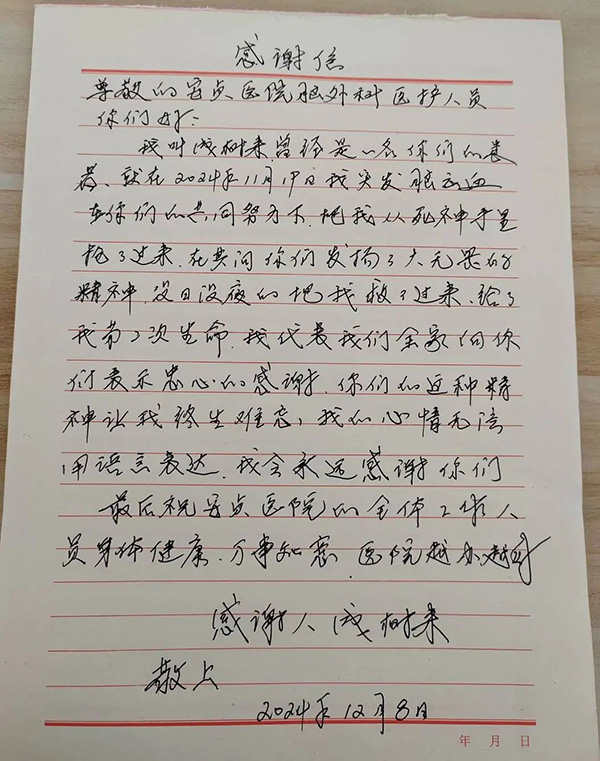 感谢信
尊敬的安贞医院脑外科医护人员
你们好:
我叫成树来曾经是一名你们的患
者、就在2024年11月19日我突发脑出血
在你们的共同努力下、把我从死神手里
抢了过来、在其间你们发扬了大无畏的
精神、没日没夜的把我救了过来、给了
我第2次生命、我代表我们全家向你
们表示忠心的感谢、你们的这种精
神让我终生难忘、我的心情无法
用语言表达、我会永远感谢你们
最后祝安贞医院的全体工作人
员身体健康、万事如意 医院越办越好
感谢人 成树来
敬上
2024年12月8日
年 月 日